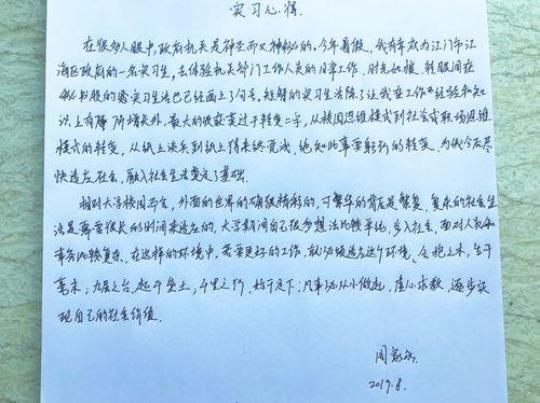 实习心得.
在很多人眼中,政府机关是神圣而又神秘的。今年暑假,我有幸成为江门市江
海区政府的一名实习生,去体验机关部门工作人员的日常工作。时光如梭,转眼间在
秘书股的实习生活已经画上了句号。短暂的实习生活除了让我在工作经验和知
识上有所增长外,最大的收获莫过于转变二字,从校园思维模式到社会或职场思维
模式的转变,从纸上谈兵到纸上得来终觉浅,绝知此事要躬行的转变。为我今后尽
快适应社会,融入社会生活奠定了基础。
相对大学校园而言,外面的世界的确很精彩的,可繁华的背后是繁复。复杂的社会生
活是需要很长的时间来适应的,大学期间自己很多想法比较单纯,步入社会,面对人和
事务比较复杂,在这样的环境中,若要更好的工作,就必须适应这个环境。合抱之木,生于
毫末;九层之台,起于垒土;千里之行,始于足下;凡事必从小做起,虚心求教,逐步实
现自己的社会价值。
周
2019.8.